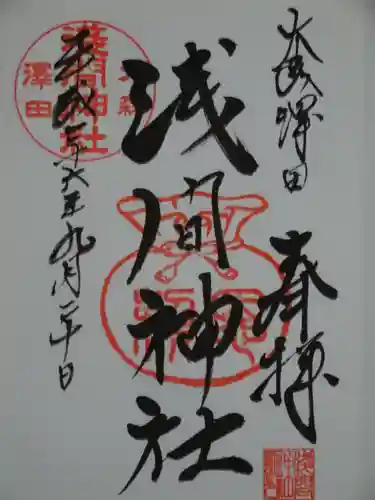 大網澤田
奉拝
浅間神社
平成二十六年九月二十日
大網
浅間神社
澤田